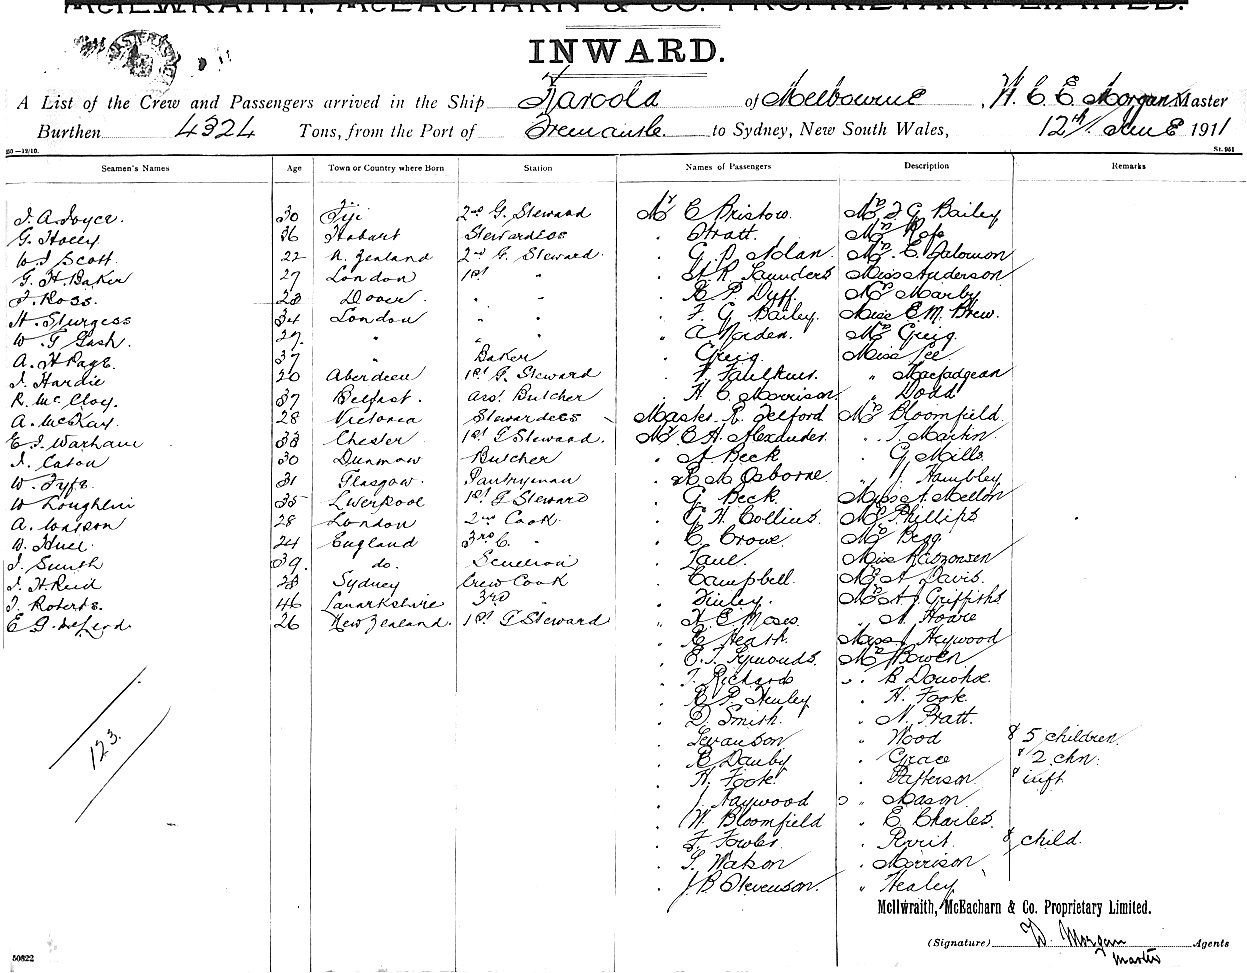 McILWRAITH, McEACHARN & CO. PROPRIETARY LIMITED.
INWARD.
A List of the Crew and Passengers arrived in the Ship Karoola of Melbourne, W. C. E. Morgan Master
Burthen 4324 Tons, from the Port of Fremantle to Sydney, New South Wales, 12th June 1911
50—12/10. St. 951
Seamen's Names Age Town or Country where Born Station Names of Passengers Description Remarks
J. A. Joyce. 30 Fiji 2nd G. Steward Mr E Bristow. Mrs F G Bailey
G. Hoey 36 Hobart Stewardess " Pratt. Mrs
W J Scott. 22 N. Zealand 2nd G. Steward. " G. P. Nolan Mrs E. Salomon
G. H. Baker 27 London 1st " " Saunders Miss Anderson
J. Ross. 23 Dover. " " " P. Duff. Marby
H. Sturgess 34 London " " " F. G Bailey. Miss E. M. Brew.
W. G Gash. 27. " " " " A Morden. Mrs Greig.
A. H Page. 37 " Baker " Greig. Miss Lee
J. Hardie 20 Aberdeen 1st G. Steward " F. Faulkner. " Macfadgean
R. McCloy. 37 Belfast. Asst. Butcher " H. C. Morrison " Dodd
A. McKay. 28 Victoria Stewardess Master R. Telford Mrs Bloomfield
E J. Warham 33 Chester 1st G Steward. Mr E A. Alexander " J. Martin
J. Caton 30 Dunmow Butcher " A. Beck " G Mills
W. Fyfe. 31 Glasgow. Pantryman " M Osborne " J. Hambley
W Loughlin 35 Liverpool 1st G Steward " G Beck Miss A. Mellon
A. Watson 28 London 2nd Cook. " G H. Collins. Phillips
Hull 24 England 3rd C. " " C Crowe Begg.
J. Smith 39. do. Scullion " Lane. Miss
J. H Reid 28 Sydney Crew Cook " Campbell. A Davis.
J. Roberts. 46 Lanarkshire 3rd " " Finley. Mrs A. J Griffiths
E. G. McLeod 26 New Zealand. 1st G Steward " E Moses " Hoare
" Heath. Miss J Heywood
" E. J. Symonds. Mrs Bowen
" J. Richards " B Donohoe.
" P. Henley " H. Fook
" D. Smith. " N. Pratt.
" Swanson " Wood & 5 children
" Danby " Grace & 2 chn.
" H. Fook " Patterson & inft
" J. Haywood " Mason
" W. Bloomfield " E Charles.
" F. Fowles " & child.
" Watson " Morrison
" J. B Stevenson. " Healey
123.
McIlwraith, McEacharn & Co. Proprietary Limited.
(Signature) W. Morgan Agents
Master
50822